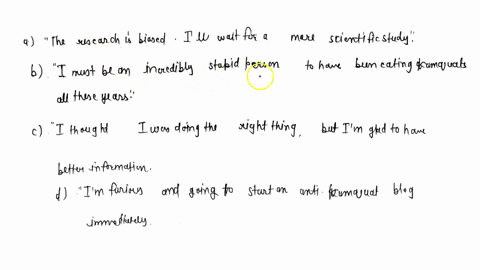 a) "The research is biased. I'll wait for a more scientific study".
b) "I must be an incredibly stupid person to have been eating
all these years".
c) "I thought I was doing the right thing, but I'm glad to have
better information.
d) "I'm furious and going to start an anti blog
immediately.